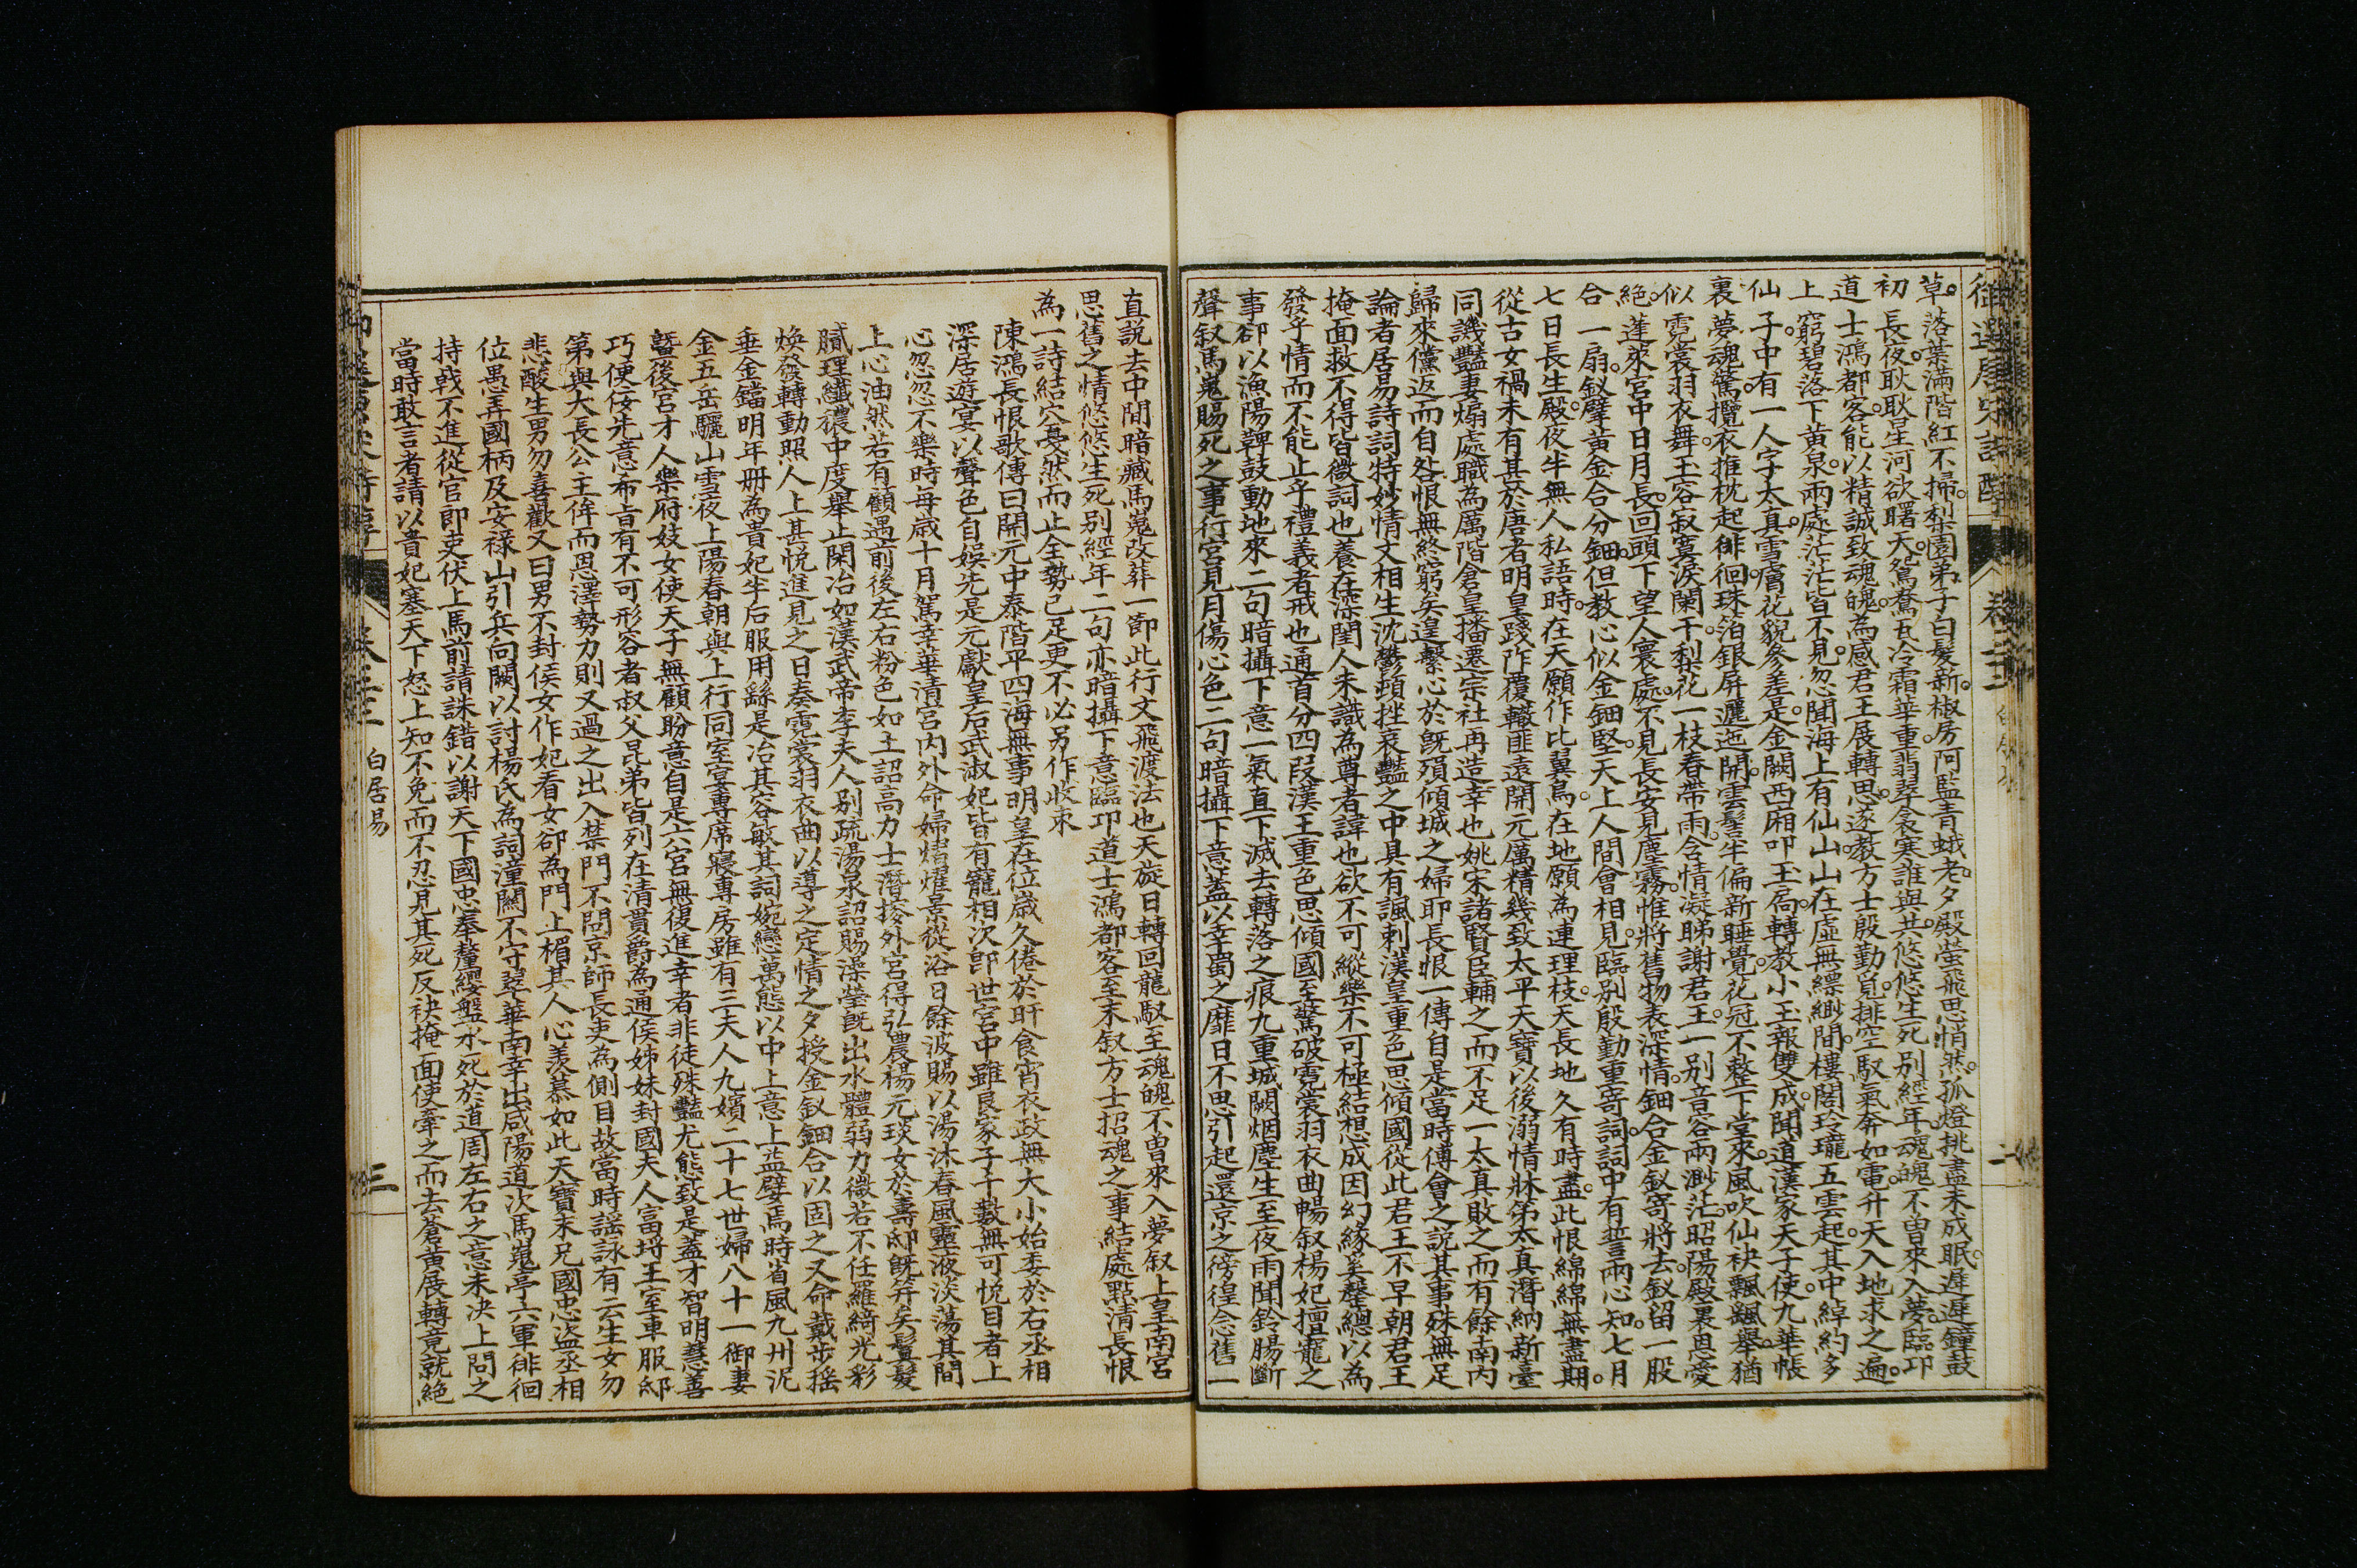 御選唐宋詩醇 卷二十二 白居易 二
草落葉滿階紅不掃梨園弟子白髮新椒房阿監青蛾老夕殿螢飛思悄然孤燈挑盡未成眠遲遲鐘鼓
初長夜耿耿星河欲曙天鴛鴦瓦冷霜華重翡翠衾寒誰與共悠悠生死別經年魂魄不曾來入夢臨卭
道士鴻都客能以精誠致魂魄為感君王展轉思遂教方士殷勤覓排空馭氣奔如電升天入地求之遍
上窮碧落下黃泉兩處茫茫皆不見忽聞海上有仙山山在虛無縹緲間樓閣玲瓏五雲起其中綽約多
仙子中有一人字太真雪膚花貌參差是金闕西廂叩玉扃轉教小玉報雙成聞道漢家天子使九華帳
裏夢魂驚攬衣推枕起徘徊珠箔銀屏邐迤開雲髻半偏新睡覺花冠不整下堂來風吹仙袂飄飄舉猶
似霓裳羽衣舞玉容寂寞淚闌干梨花一枝春帶雨含情凝睇謝君王一別音容兩渺茫昭陽殿裏恩愛
絕蓬萊宮中日月長回頭下望人寰處不見長安見塵霧惟將舊物表深情鈿合金釵寄將去釵留一股
合一扇釵擘黃金合分鈿但教心似金鈿堅天上人間會相見臨別殷勤重寄詞詞中有誓兩心知七月
七日長生殿夜半無人私語時在天願作比翼鳥在地願為連理枝天長地久有時盡此恨綿綿無盡期
從古女禍未有甚於唐者明皇踐阼覆轍匪遠開元厲精幾致太平天寶以後溺情牀笫太真潛納新臺
同譏豔妻煽處職為厲階倉皇播遷宗社再造幸也姚宋諸賢臣輔之而不足一太真敗之而有餘南內
歸來儻返而自咎恨無終窮矣遑繫心於既殞傾城之婦耶長恨一傳自是當時傅會之說其事殊無足
論者居易詩詞特妙情文相生沈鬱頓挫哀豔之中具有諷刺漢皇重色思傾國從此君王不早朝君王
掩面救不得皆微詞也養在深閨人未識為尊者諱也欲不可縱樂不可極結想成因幻緣奚罄總以為
發乎情而不能止乎禮義者戒也通首分四段漢王重色思傾國至驚破霓裳羽衣曲暢叙楊妃擅寵之
事卻以漁陽鞞鼓動地來二句暗攝下意一氣直下滅去轉落之痕九重城闕烟塵生至夜雨聞鈴腸斷
聲叙馬嵬賜死之事行宮見月傷心色二句暗攝下意蓋以幸蜀之靡日不思引起還京之徬徨念舊一
直說去中間暗藏馬嵬改葬一節此行文飛渡法也天旋日轉回龍馭至魂魄不曾來入夢叙上皇南宮
思舊之情悠悠生死別經年二句亦暗攝下意臨卭道士鴻都客至末叙方士招魂之事結處點清長恨
為一詩結穴戛然而止全勢已足更不必另作收束
陳鴻長恨歌傳曰開元中泰階平四海無事明皇在位歲久倦於旰食宵衣政無大小始委於右丞相
深居遊宴以聲色自娛先是元獻皇后武淑妃皆有寵相次即世宮中雖良家子千數無可悅目者上
心忽忽不樂時每歲十月駕幸華清宮內外命婦熠燿景從浴日餘波賜以湯沐春風靈液淡蕩其間
上心油然若有顧遇前後左右粉色如土詔高力士潛搜外宮得弘農楊元琰女於壽邸既笄矣鬢髮
膩理纖穠中度舉止閑冶如漢武帝李夫人別疏湯泉詔賜澡瑩既出水體弱力微若不任羅綺光彩
煥發轉動照人上甚悅進見之日奏霓裳羽衣曲以導之定情之夕授金釵鈿合以固之又命戴步搖
垂金鐺明年冊為貴妃半后服用繇是冶其容敏其詞婉孌萬態以中上意上益嬖焉時省風九州泥
金五岳驪山雪夜上陽春朝與上行同室宴專席寢專房雖有三夫人九嬪二十七世婦八十一御妻
暨後宮才人樂府妓女使天子無顧盼意自是六宮無復進幸者非徒殊豔尤態致是蓋才智明慧善
巧便佞先意希旨有不可形容者叔父昆弟皆列在清貫爵為通侯姊妹封國夫人富埒王室車服邸
第與大長公主侔而恩澤勢力則又過之出入禁門不問京師長吏為側目故當時謡詠有云生女勿
悲酸生男勿喜歡又曰男不封侯女作妃看女卻為門上楣其人心羨慕如此天寶末兄國忠盜丞相
位愚弄國柄及安祿山引兵向闕以討楊氏為詞潼關不守翠華南幸出咸陽道次馬嵬亭六軍徘徊
持戟不進從官郎吏伏上馬前請誅錯以謝天下國忠奉氂纓盤水死於道周左右之意未决上問之
當時敢言者請以貴妃塞天下怒上知不免而不忍見其死反袂掩面使牽之而去蒼黃展轉竟就絕
御選唐宋詩醇 卷二十二 白居易 三